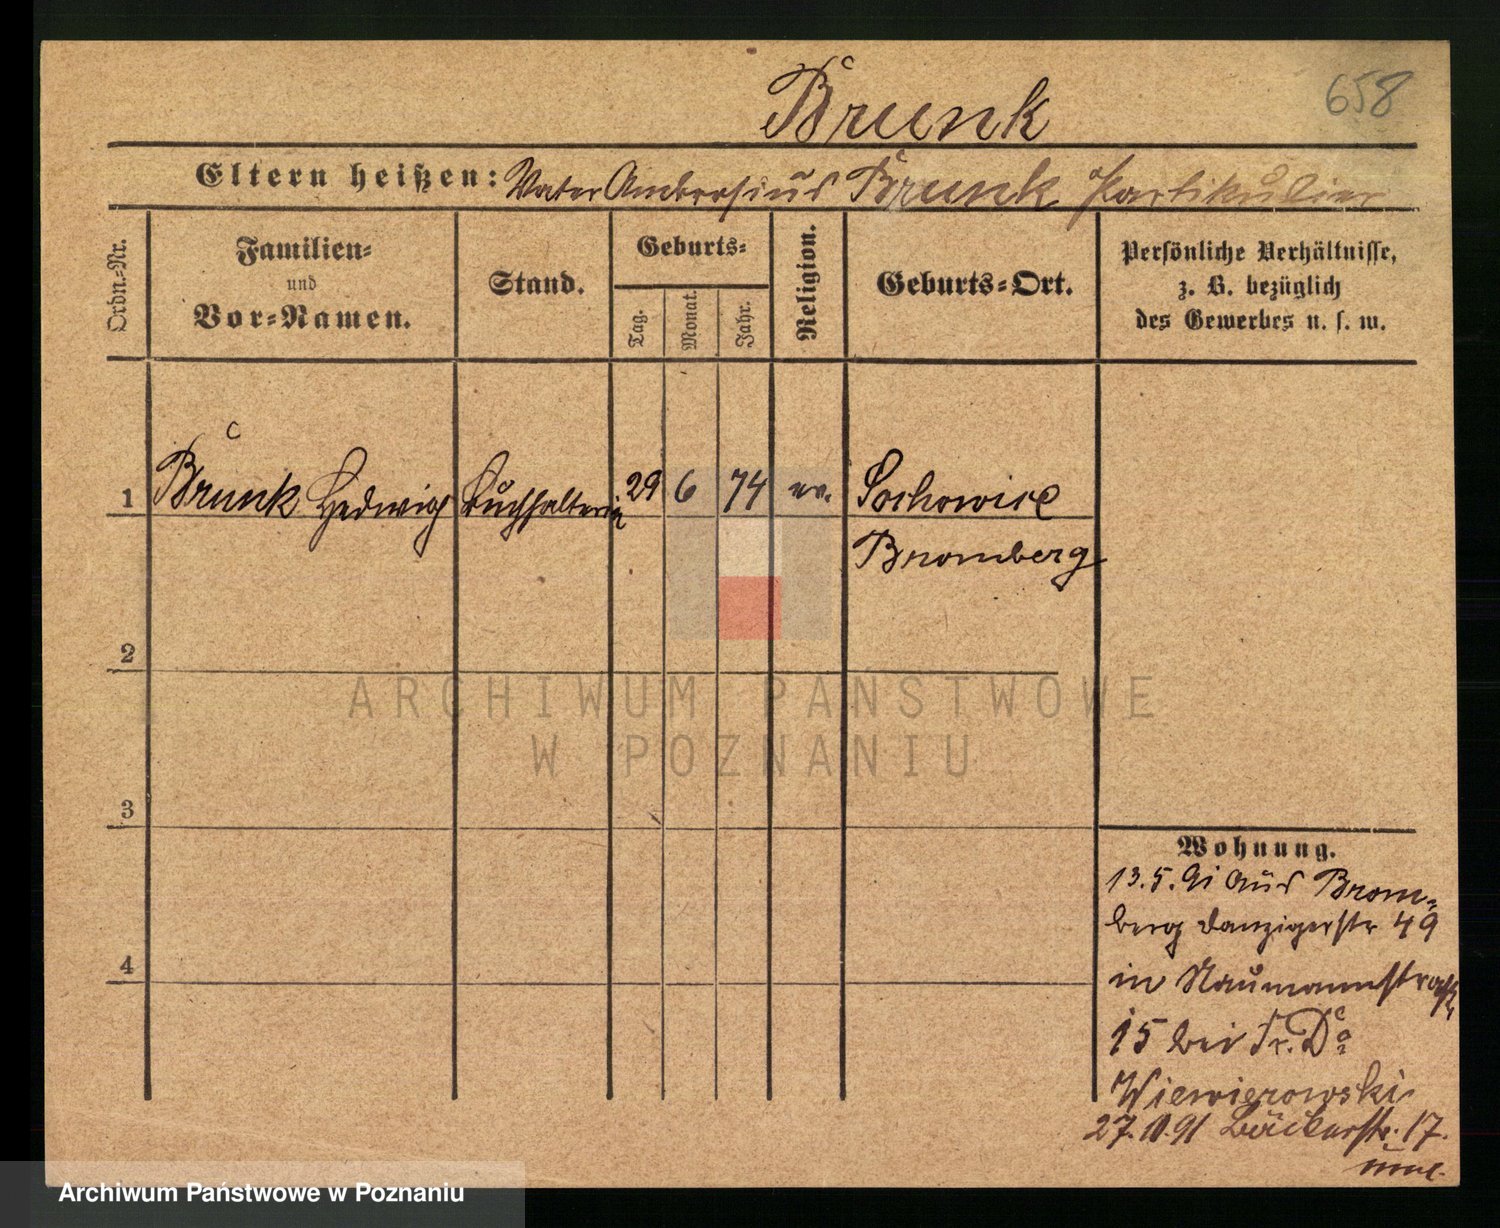 Brunk
658
Eltern heißen: Vater Ambrosius Brunk Partikulier
Ordn.-Nr.
Familien-
und
Vor-Namen.
Stand.
Geburts-
Tag.
Monat.
Jahr.
Religion.
Geburts-Ort.
Persönliche Verhältnisse,
z. B. bezüglich
des Gewerbes u. s. w.
1 Brunk Hedwig Buchhalterin 29 6 74 ev. Sochowice
Bromberg
2
3
4
Wohnung.
13.5.91 aus Brom-
berg Danzigerstr 49
in Naumannstraße
15 bei Fr. Dr
Wiewierowski
27. 91 Bäckerstr. 17.
ARCHIWUM PAŃSTWOWE
W POZNANIU
Archiwum Państwowe w Poznaniu